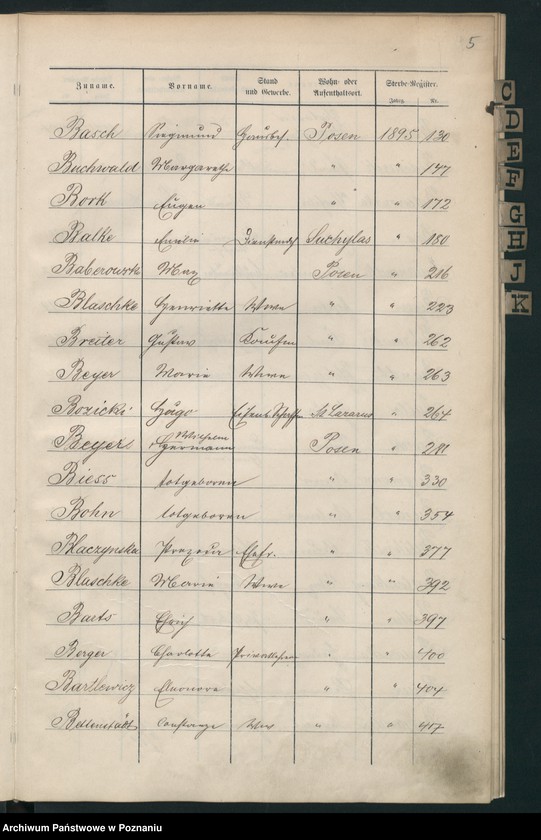 5
Zuname. Vorname. Stand und Gewerbe. Wohn- oder Aufenthaltsort. Sterbe-Register.
Jahrg. Nr.
Basch Siegmund Hausbes. Posen 1895 130
Buchwald Margarethe " " 147
Bork Eugen " " 172
Balke Emilie Suchylas " 180
Baberowsk Max Posen " 216
Blaschke Henriette Wwe " " 223
Breiter Gustav Kaufm " " 262
Beyer Marie Wwe " " 263
Bozicki Hugo St Lazarus " 264
Beyer Wilhelm Hermann Posen " 281
Riess totgeboren " " 330
Bohn totgeboren " " 354
Blaczynska Ehefr. " " 377
Blaschke Marie Wwe " " 392
Barts Erich " " 397
Berger Charlotte " " 400
Bartlewicz Eleonore " " 404
Bettenstädt Constanze Wwe " " 407
C
D
E
F
G
H
J
K
Archiwum Państwowe w Poznaniu